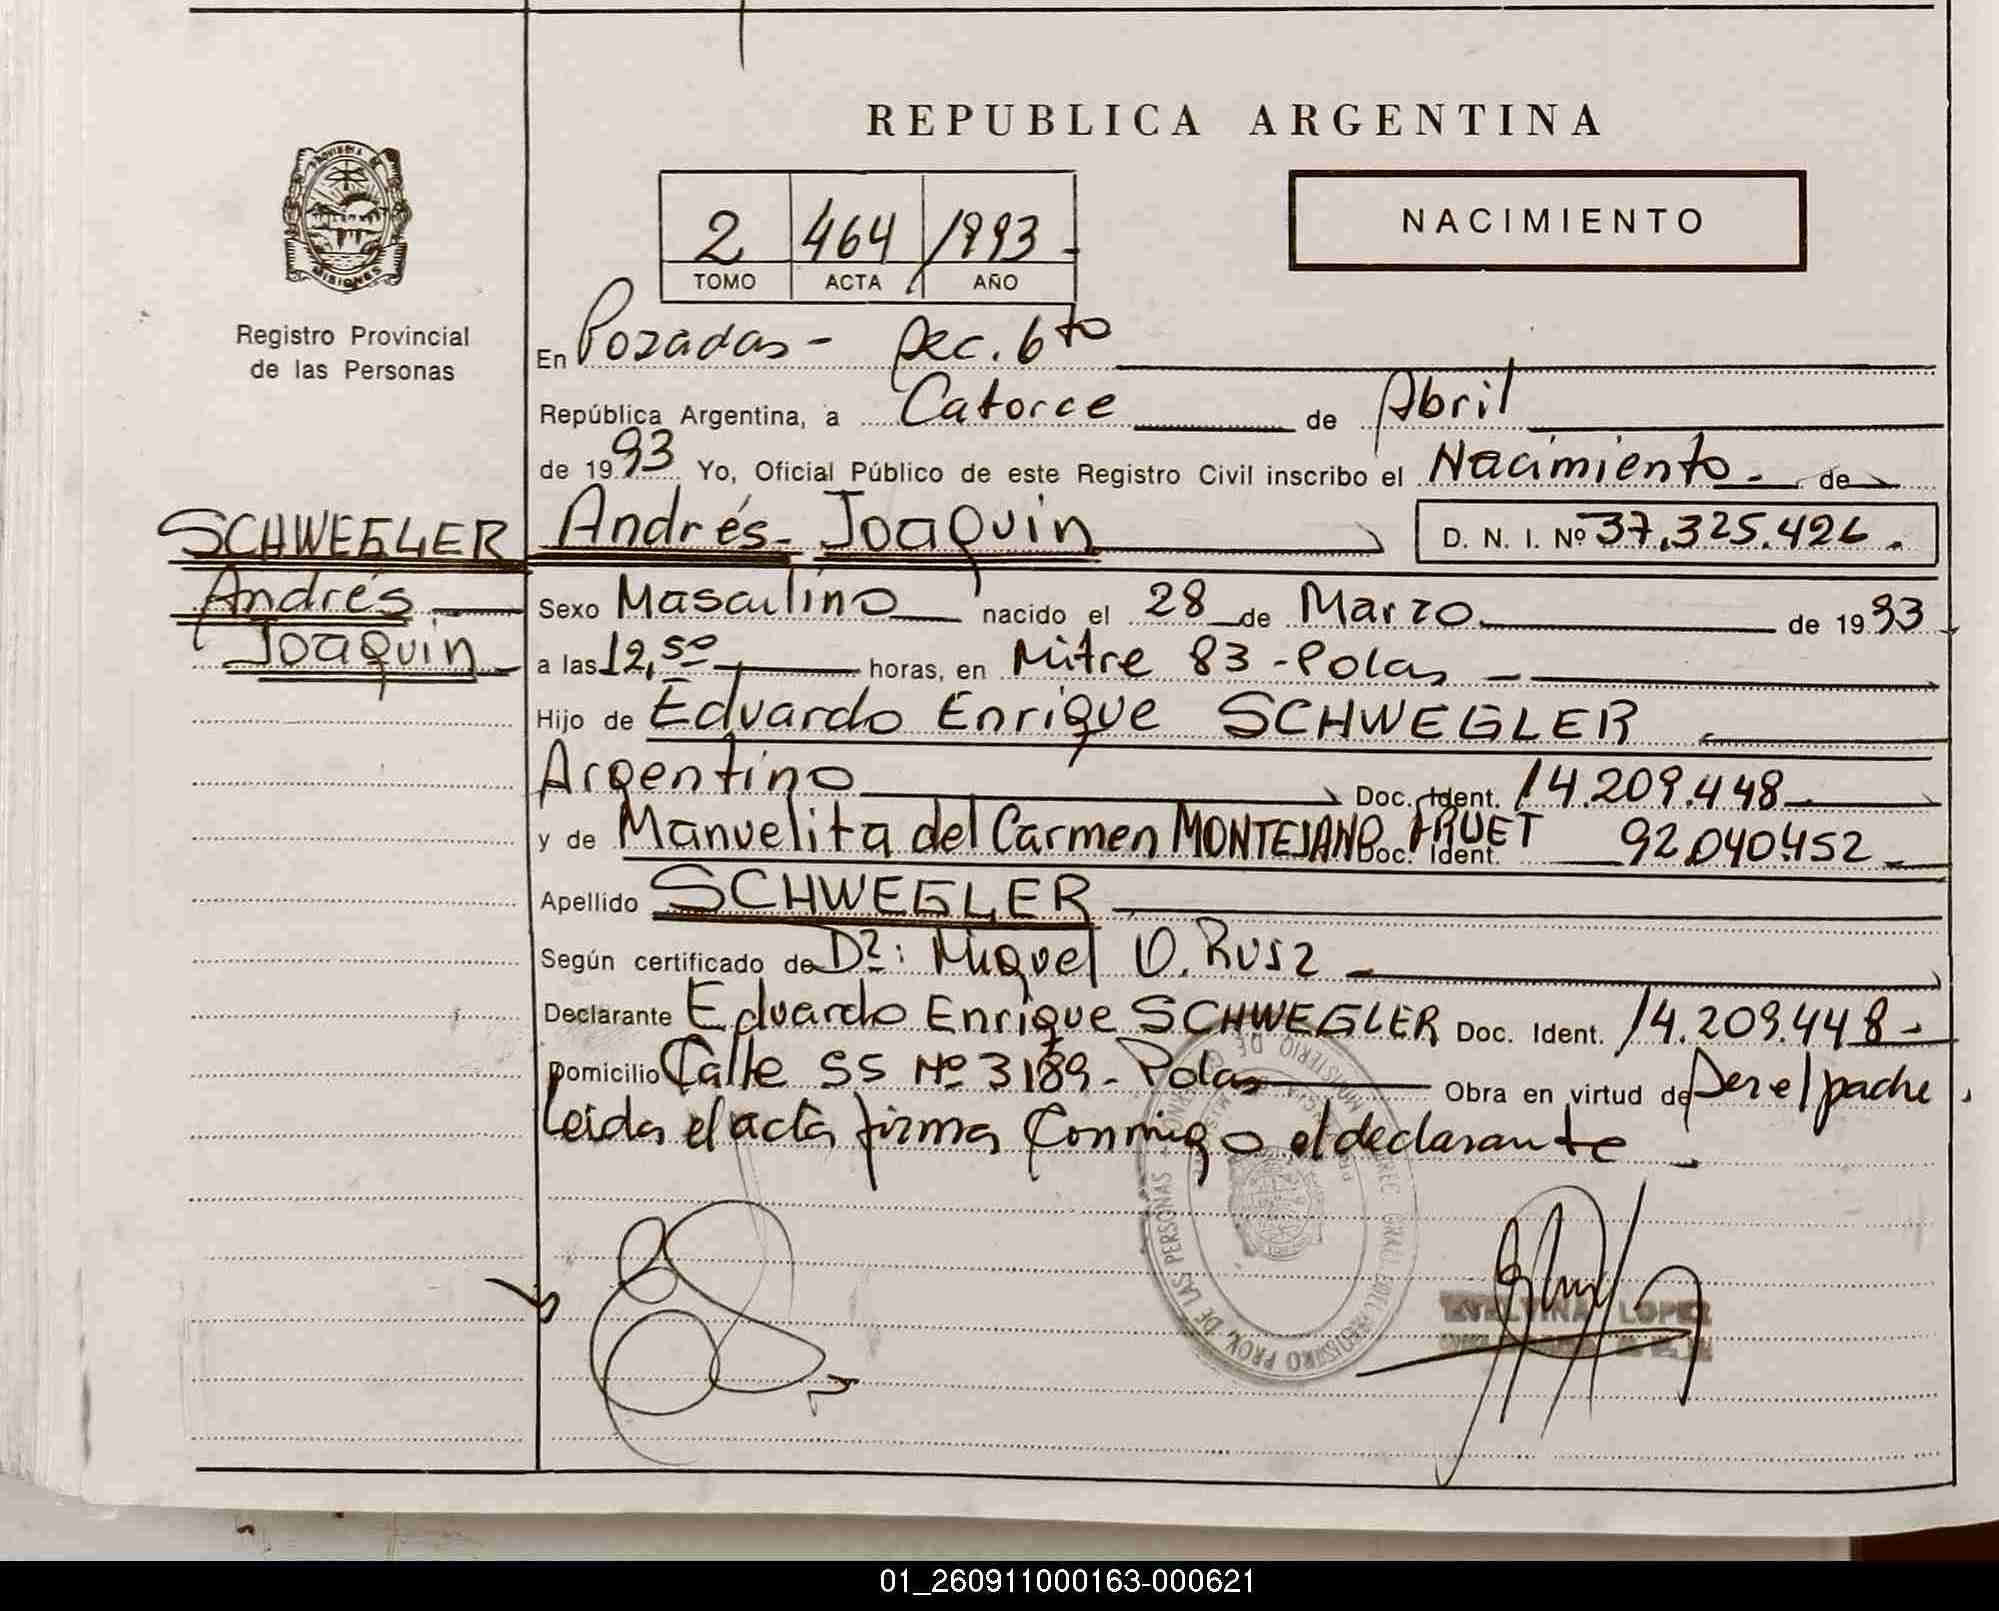 REPUBLICA ARGENTINA
NACIMIENTO
2 464 1993
TOMO ACTA AÑO
PROVINCIA DE MISIONES
Registro Provincial
de las Personas
SCHWEGLER
Andrés
Joaquin
En Posadas - Sec. 6to
República Argentina, a Catorce de Abril
de 1993 Yo, Oficial Público de este Registro Civil inscribo el Nacimiento - de
Andrés - Joaquin D. N. I. Nº 37.325.426.
Sexo Masculino nacido el 28 de Marzo de 1993
a las 12,50 horas, en Mitre 83 - Pdas
Hijo de Eduardo Enrique SCHWEGLER
Argentino Doc. Ident. 14.209.448
y de Manuelita del Carmen MONTEJANO Doc. Ident. 92.040.452
Apellido SCHWEGLER
Según certificado de Dr: Miguel O.
Declarante Eduardo Enrique SCHWEGLER Doc. Ident. 14.209.448
Domicilio Calle Nº 3189 - Pdas Obra en virtud de Ser el padre.
Leida el acta firma Conmigo el declarante
LOPEZ
01_260911000163-000621